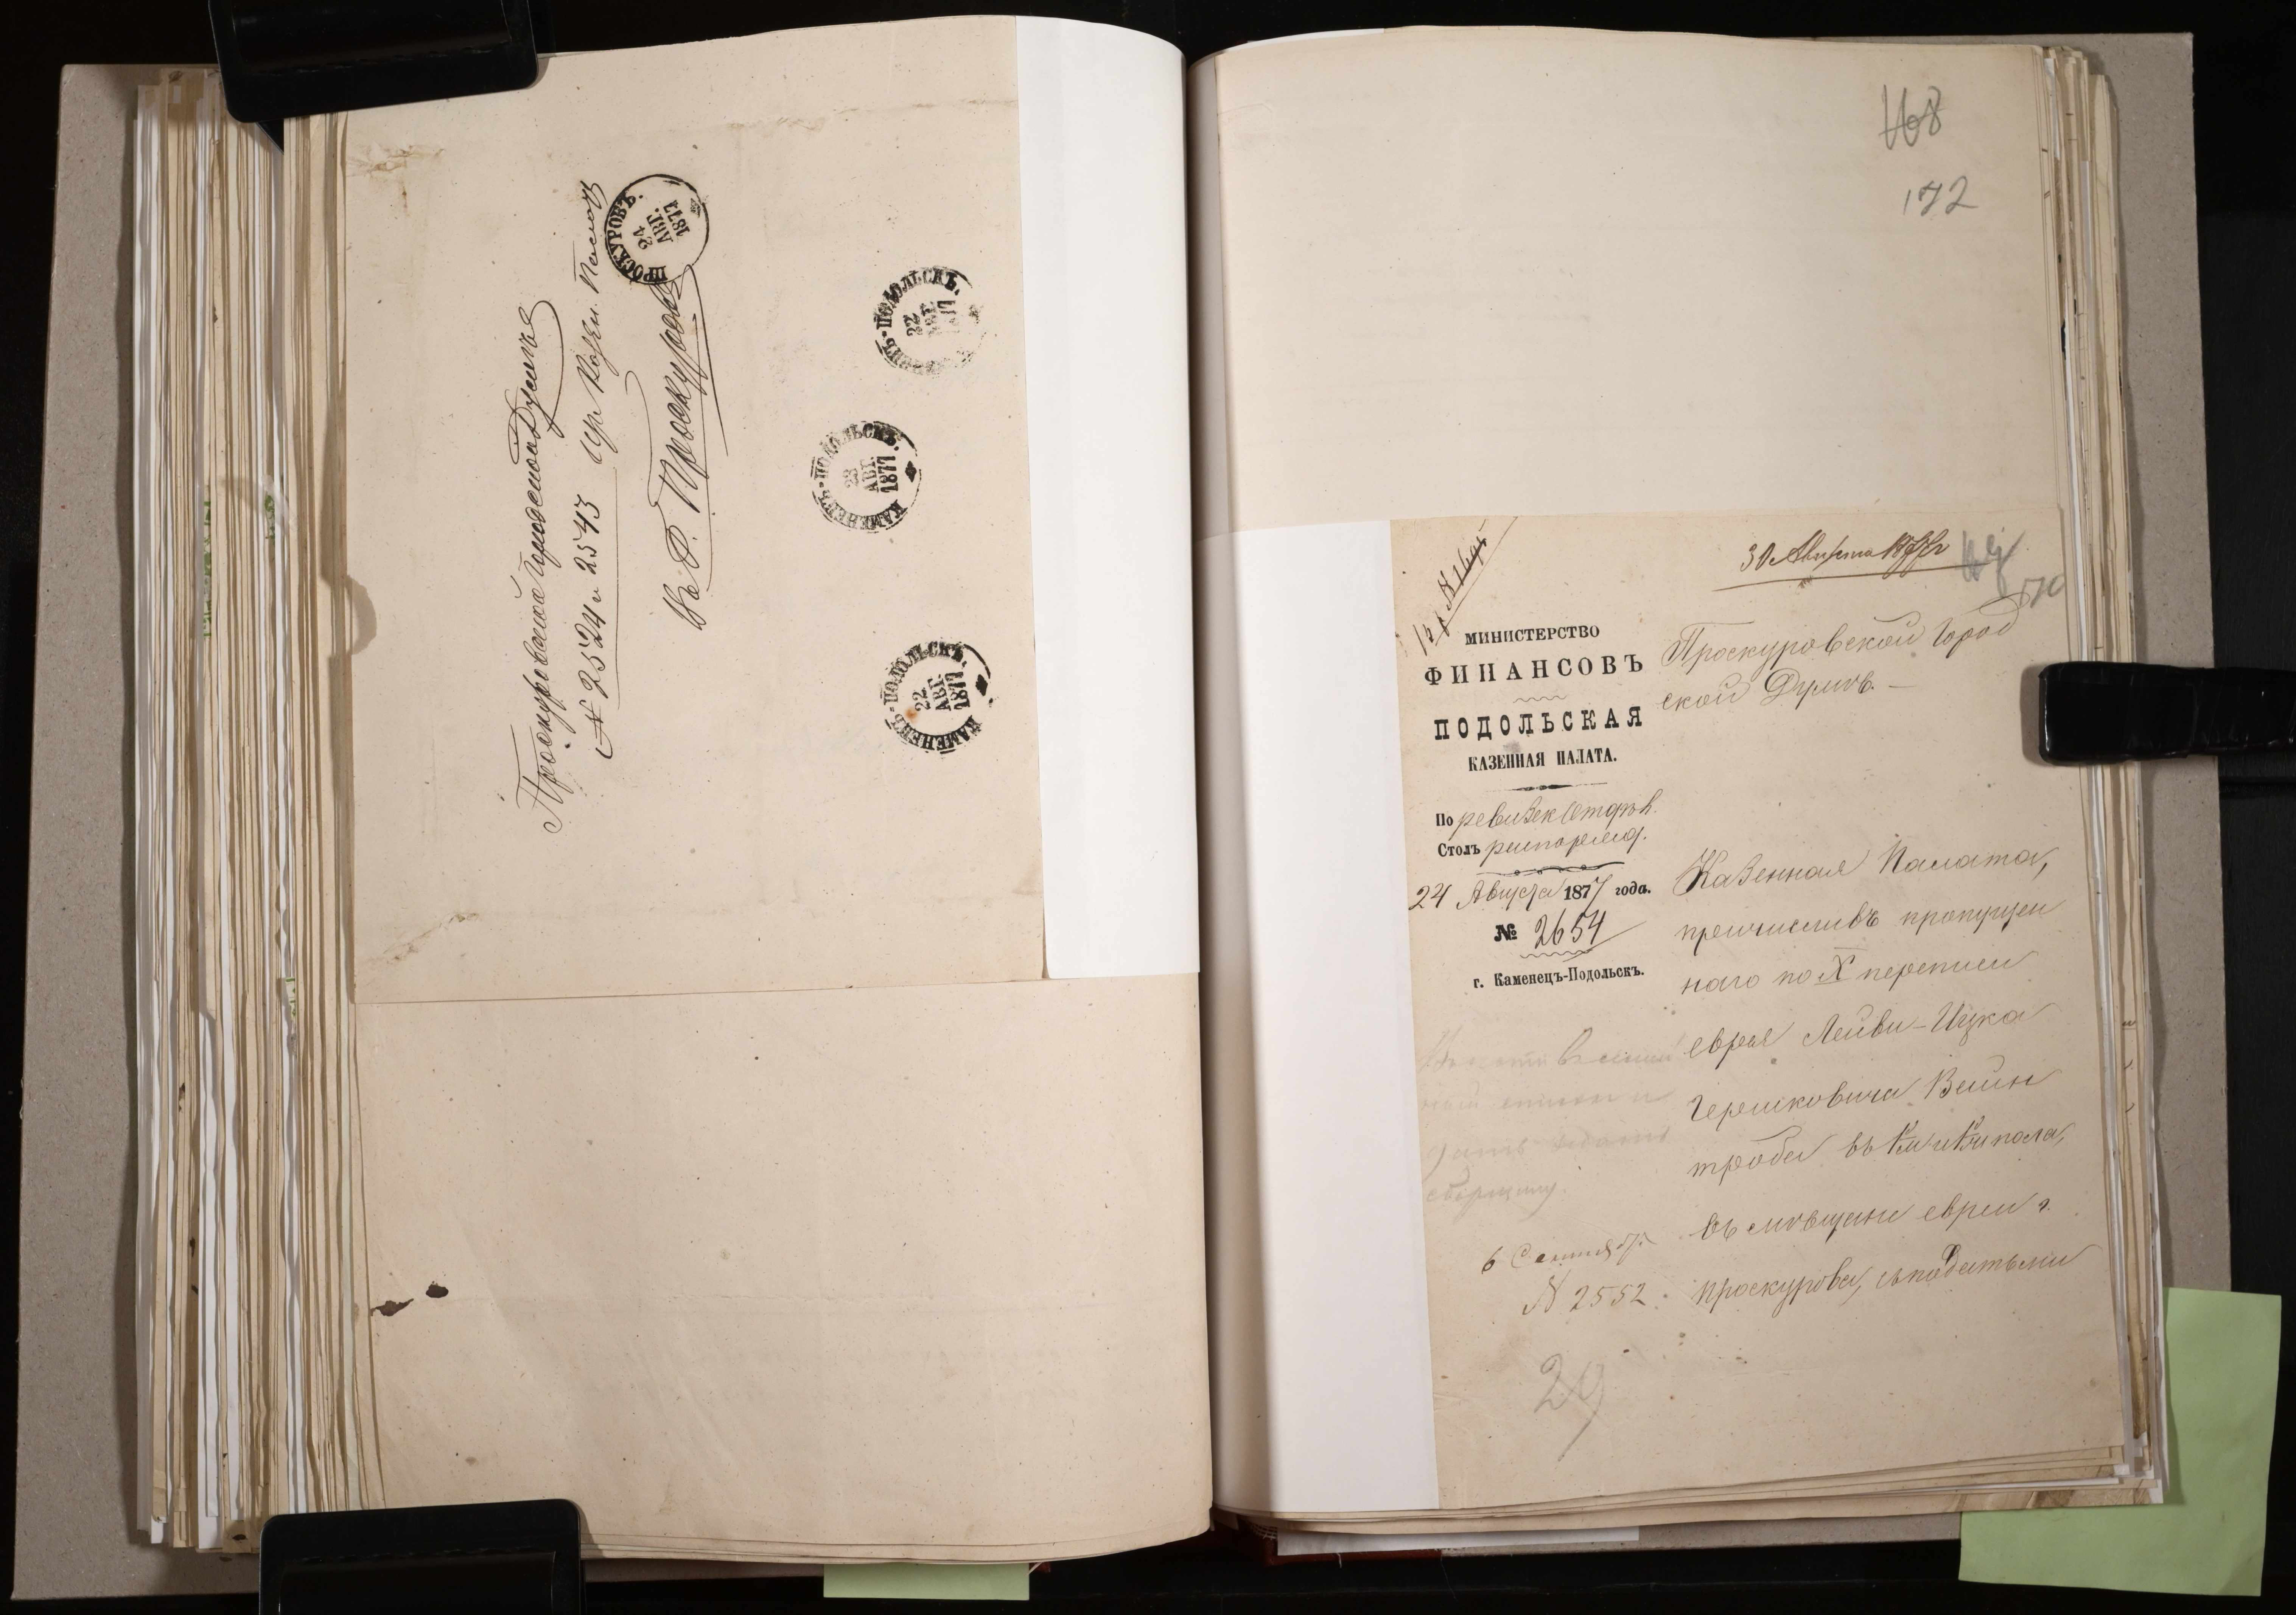 Проскуровской Городской Думѣ
№ 2524 и 2543
въ г. Проскуровъ
ПРОСКУРОВЪ.
24
АВГ.
1877
КАМЕНЕЦЪ-ПОДОЛЬСКЪ.
22
АВГ.
1877
КАМЕНЕЦЪ-ПОДОЛЬСКЪ.
23
АВГ.
1877
КАМЕНЕЦЪ-ПОДОЛЬСКЪ.
22
АВГ.
1877
168
172
30 Августа 1877 г
МИНИСТЕРСТВО
ФИНАНСОВЪ
ПОДОЛЬСКАЯ
КАЗЕННАЯ ПАЛАТА.
По ревизск
Столъ распоряд.
24 Августа 1877 года.
№ 2654
г. Каменецъ-Подольскъ.
6 Сентября
№ 2552.
29
Проскуровской Город
ской Думѣ. —
Казенная Палата,
причисливъ пропущен
наго по X переписи
еврея Лейви-Ицка
Гершковича Вайн
троба въ
въ мѣщане евреи г.
Проскурова, съ податьми